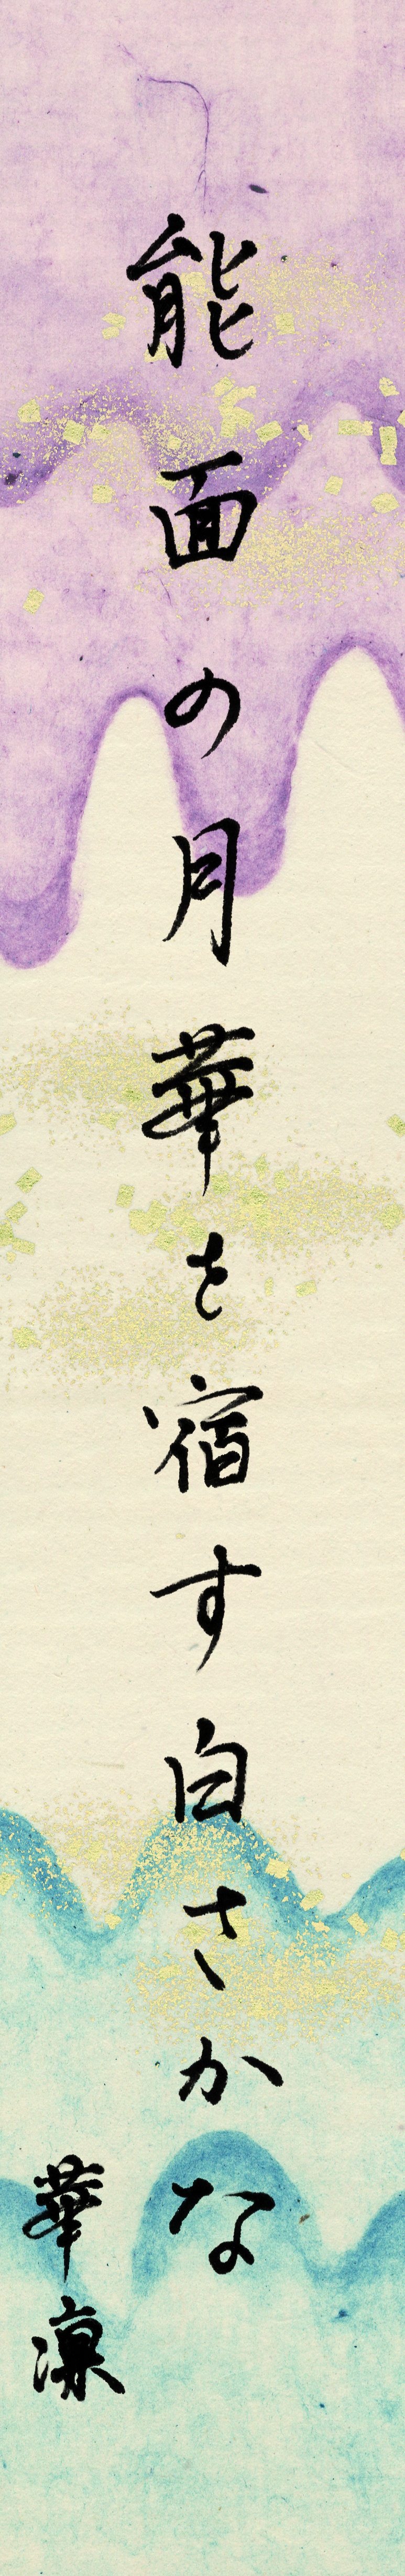 能面の月華を宿す白さかな
華凛